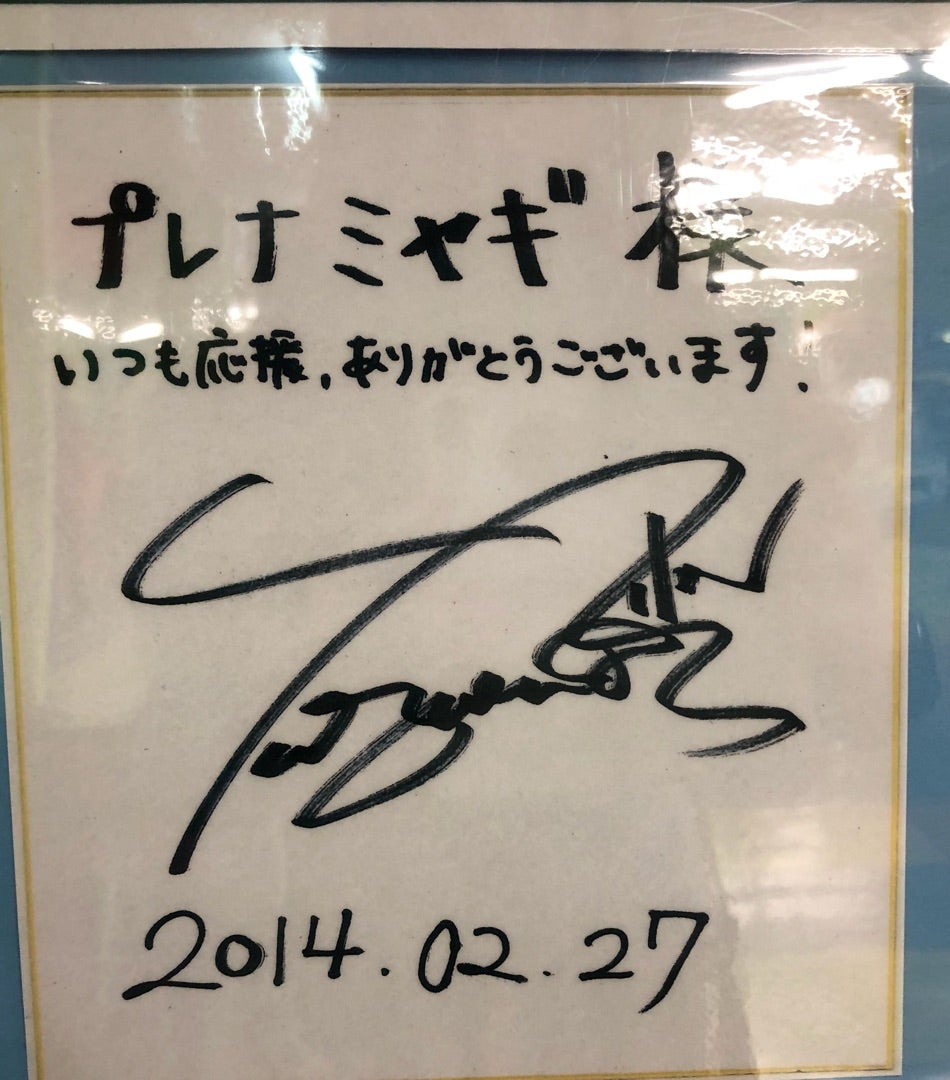 プレナミヤギ様
いつも応援、ありがとうございます!
2014.02.27